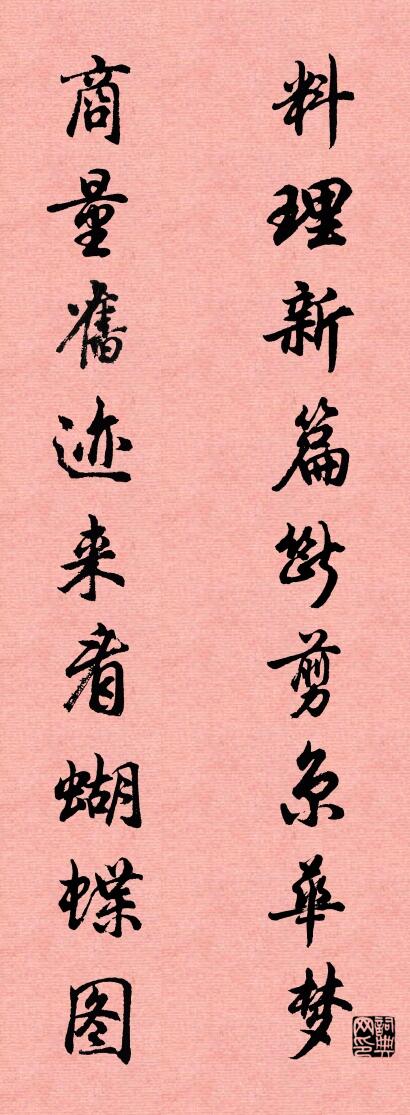 料理新篇断剪京華梦
商量舊迹来看蝴蝶图
詞典网印